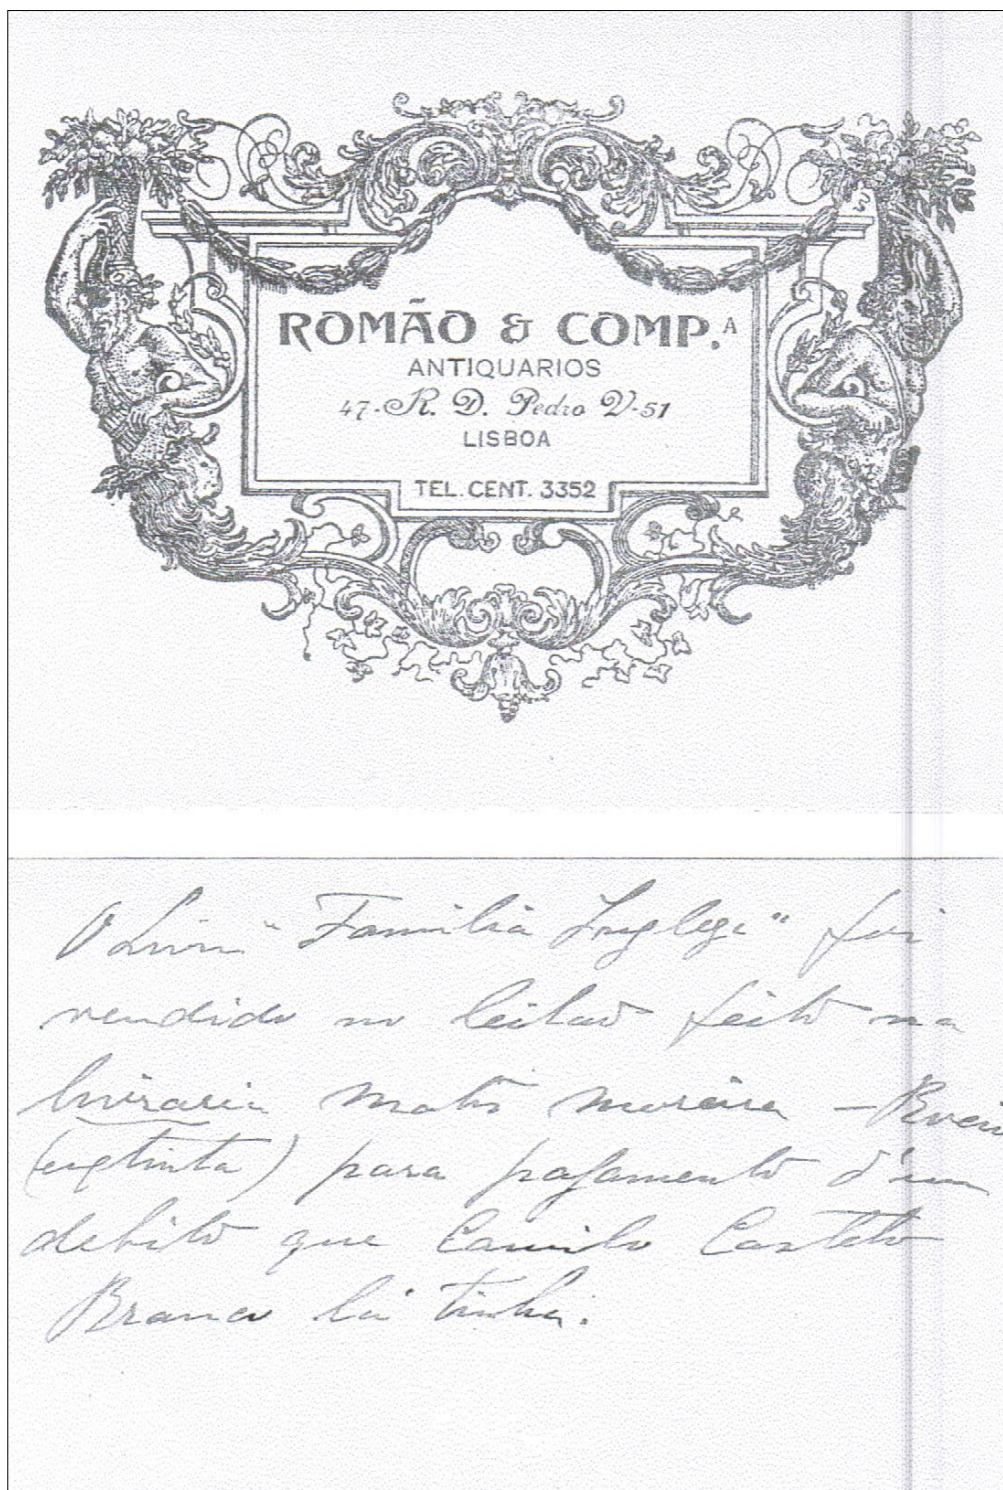 ROMÃO & COMP.A
ANTIQUARIOS
47-R. D. Pedro V-51
LISBOA
TEL. CENT. 3352
O Livro "Familia Ingleza" foi
vendido no leilão feito na
livraria Matos Moreira –
(extinta) para pagamento d'um
debito que Camilo Castelo
Branco lá tinha.